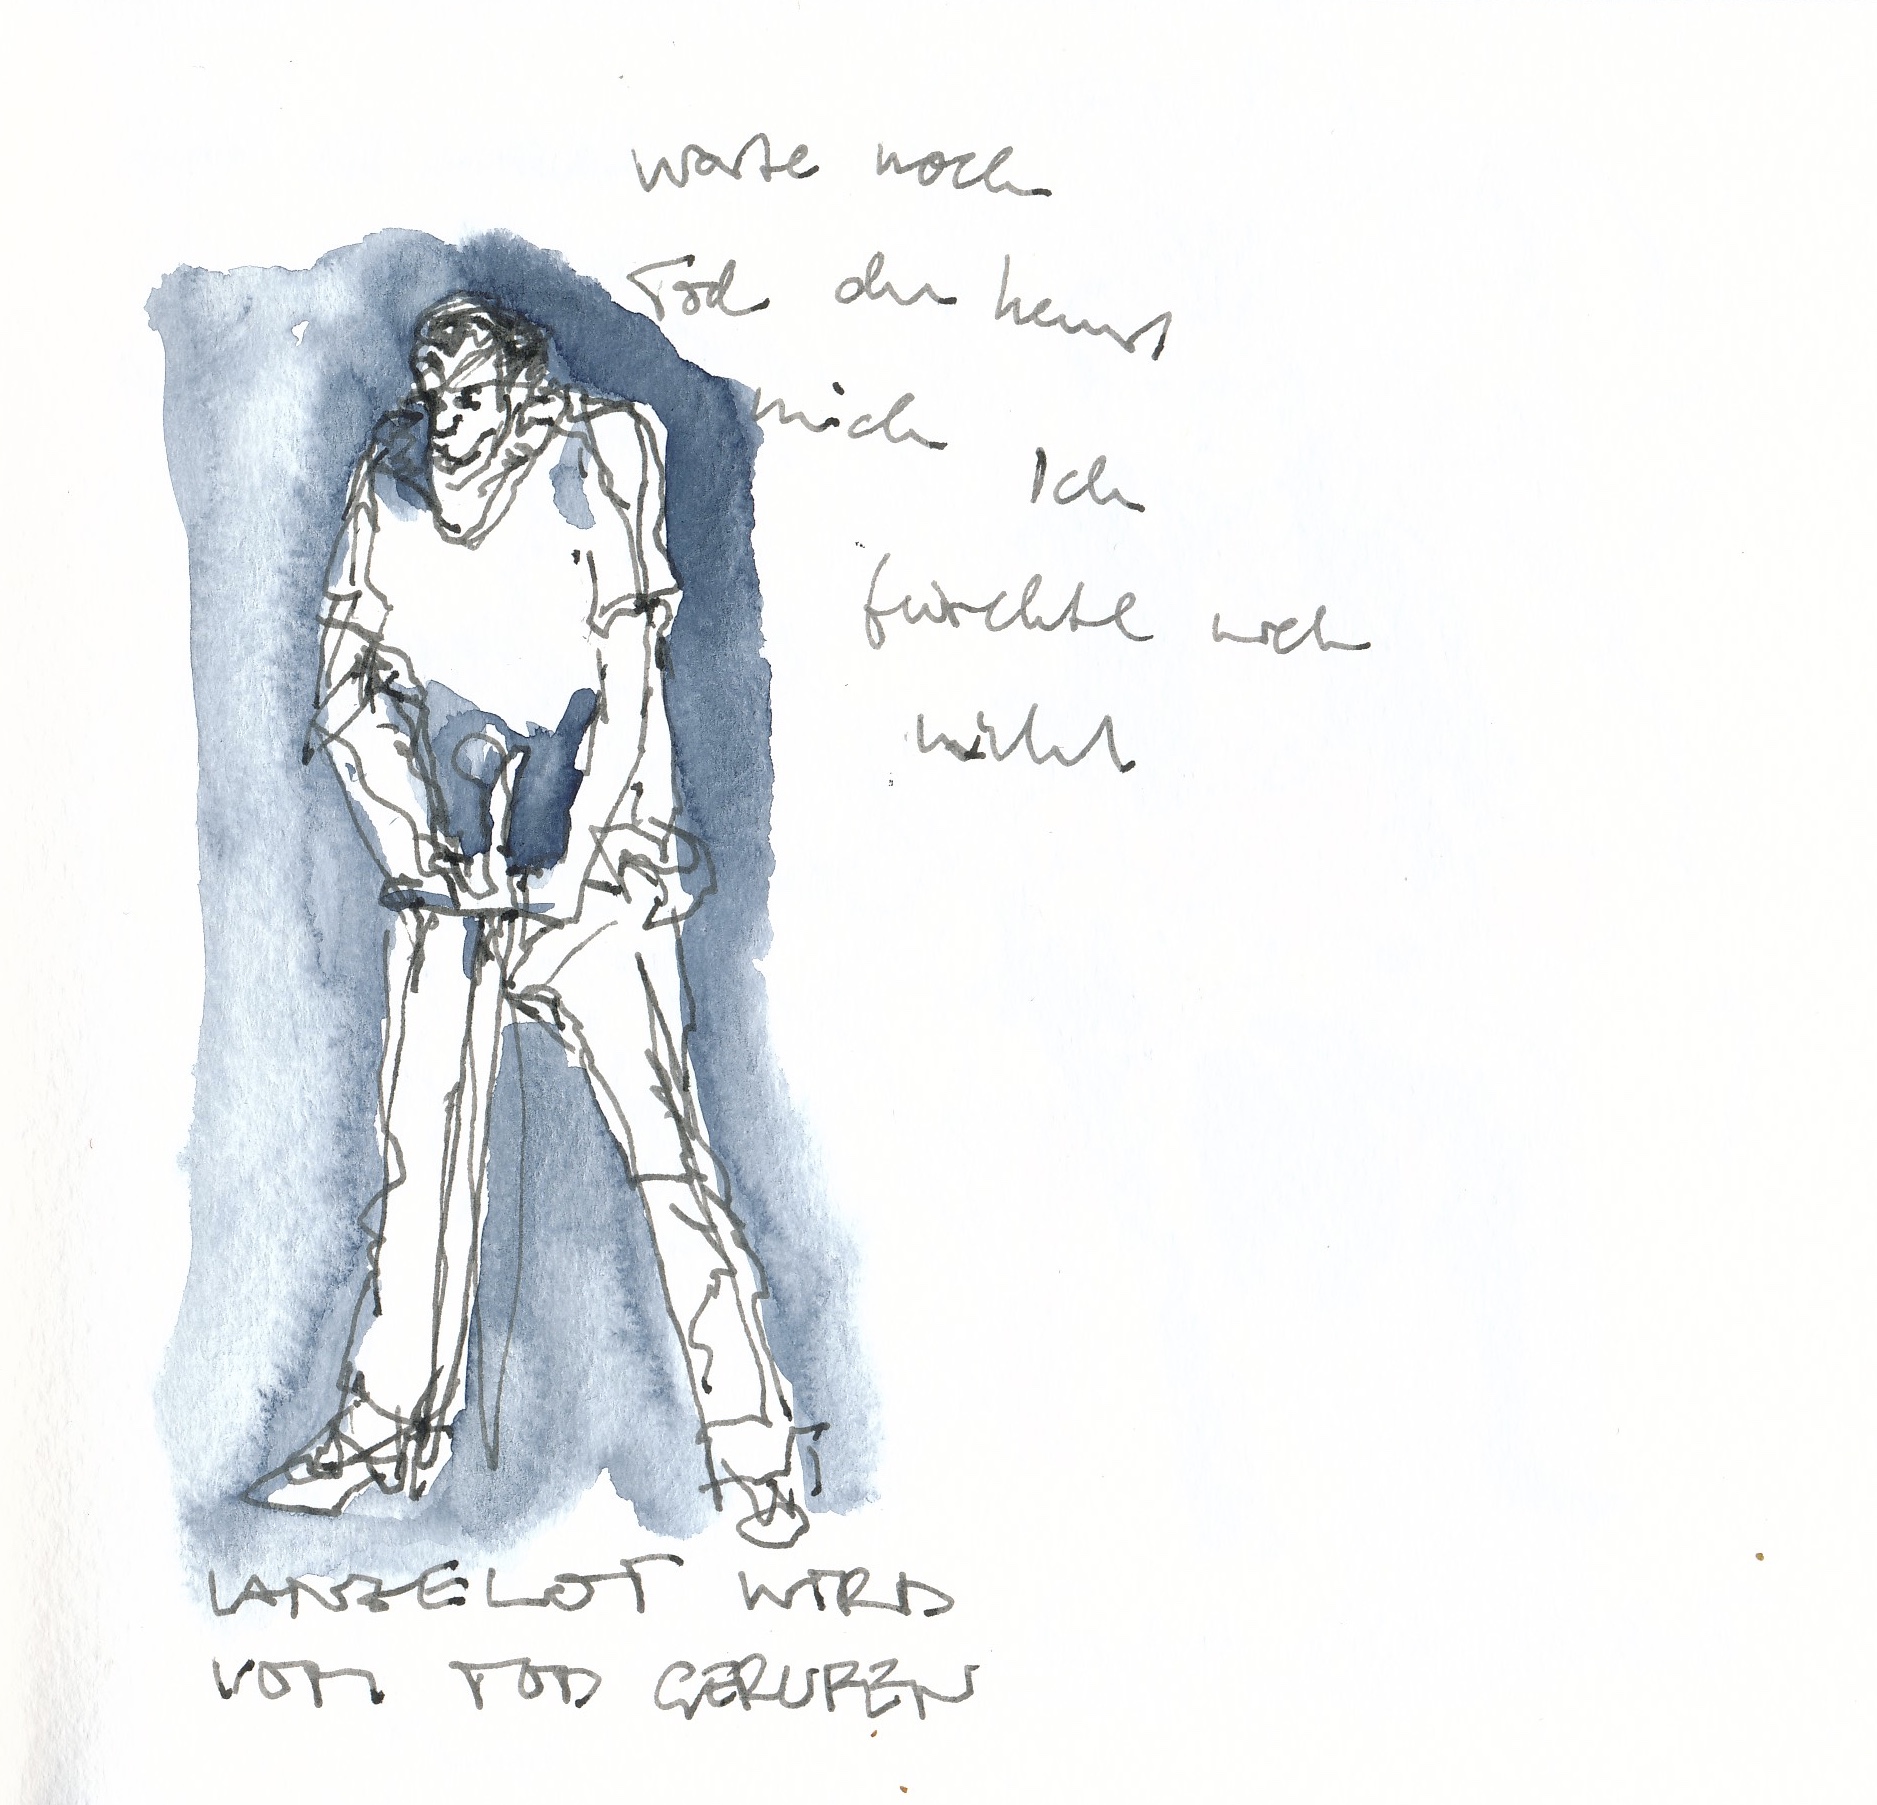 warte noch
Tod du kennst
mich
Ich
fürchte mich
nicht
LANZELOT WIRD
VOM TOD GERUFEN